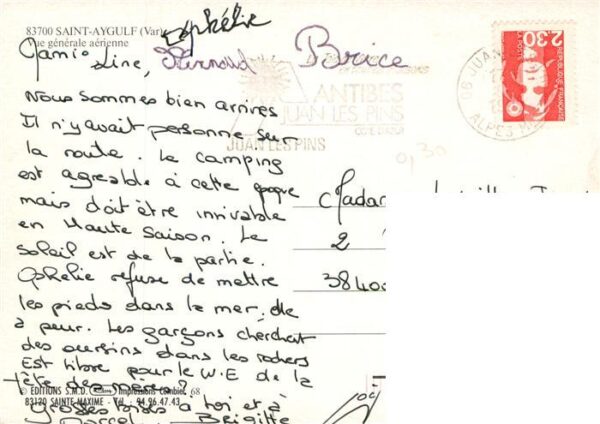 83700 SAINT-AYGULF (Var)
Vue générale aérienne
Ophélie
Brice
Mamie Line,
Nous sommes bien arrivés
Il n'y avait personne sur
la route. Le camping
est agréable à cette époque
mais doit être invivable
en Haute Saison. Le
soleil est de la partie.
Ophélie refuse de mettre
les pieds dans la mer, elle
à peur. Les garçons cherchent
des oursins dans les rochers
Est libre pour le W.E de la
fête des mères?
Grosses bises à toi et à
Marcel. Brigitte
© EDITIONS S.M.D. Impressions Combier 68
83120 SAINTE-MAXIME - Tél. : 94.96.47.43
ANTIBES
JUAN LES PINS
COTE D'AZUR
JUAN LES PINS
06 JUAN
ALPES M
2,30
LA POSTE
REPUBLIQUE FRANÇAISE
0,30
Madam
2
38400